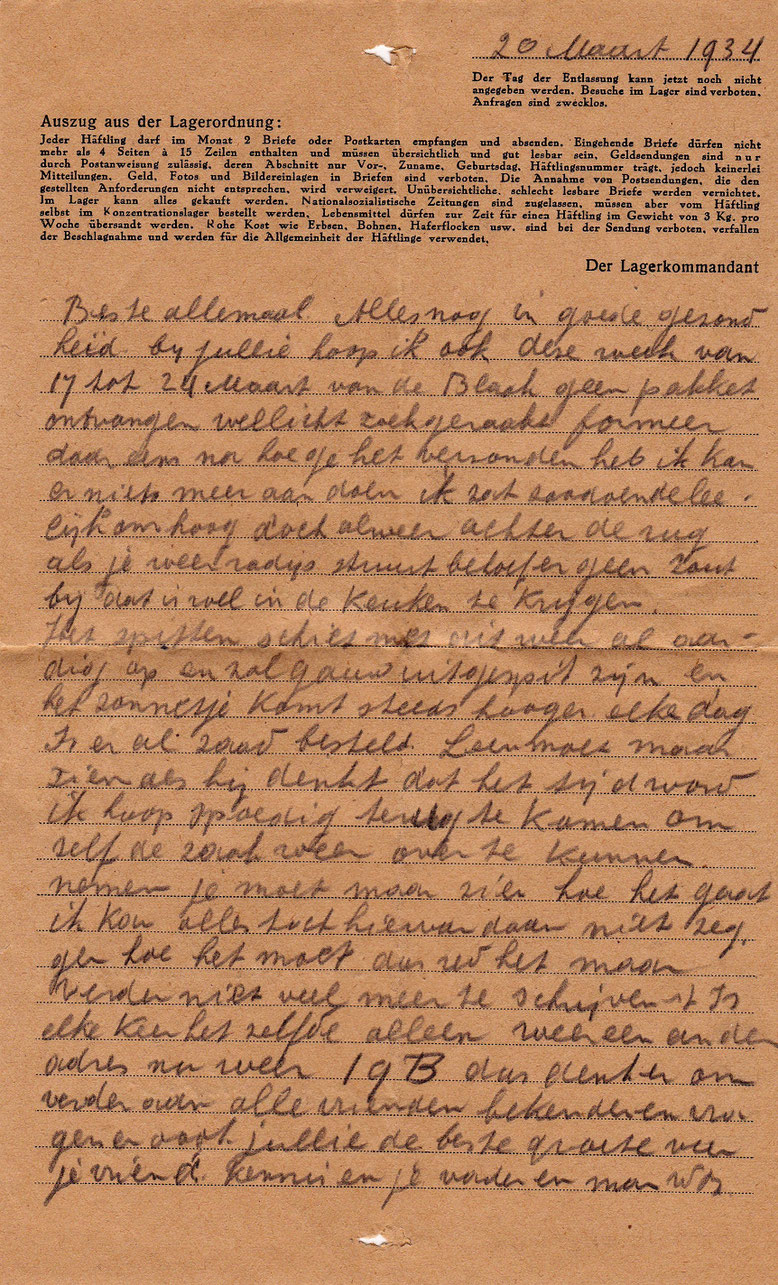 20 Maart 1934
Der Tag der Entlassung kann jetzt noch nicht
angegeben werden. Besuche im Lager sind verboten.
Anfragen sind zwecklos.
Auszug aus der Lagerordnung:
Jeder Häftling darf im Monat 2 Briefe oder Postkarten empfangen und absenden. Eingehende Briefe dürfen nicht
mehr als 4 Seiten à 15 Zeilen enthalten und müssen übersichtlich und gut lesbar sein. Geldsendungen sind nur
durch Postanweisung zulässig, deren Abschnitt nur Vor-, Zuname, Geburtsdag, Häftlingsnummer trägt, jedoch keinerlei
Mitteilungen. Geld, Fotos und Bildereinlagen in Briefen sind verboten. Die Annahme von Postsendungen, die den
gestellten Anforderungen nicht entsprechen, wird verweigert. Unübersichtliche, schlecht lesbare Briefe werden vernichtet.
Im Lager kann alles gekauft werden. Nationalsozialistische Zeitungen sind zugelassen, müssen aber vom Häftling
selbst im Konzentrationslager bestellt werden. Lebensmittel dürfen zur Zeit für einen Häftling im Gewicht von 3 Kg. pro
Woche übersandt werden. Rohe Kost wie Erbsen, Bohnen, Haferflocken usw. sind bei der Sendung verboten, verfallen
der Beschlagnahme und werden für die Allgemeinheit der Häftlinge verwendet.
Der Lagerkommandant
Beste allemaal. Alles nog in goede gezond
heid by jullie hoop ik ook deze week van
17 tot 24 Maart van de Blach geen pakket
ontvangen wellicht zoekgeraakt formeer
daar eens na hoe je het verzonden heb ik kan
er niets meer aan doen ik zat zoodoende lee-
lijk omhoog doch alweer achter de rug
als je weer radijs stuurt behoef er geen zout
bij dat is wel in de keuken te krijgen.
Het spitten schiet me ons weer al aar-
dig op en zal gauw uitgespit zijn en
het zonnetje komt steeds hooger elke dag
Is er al zaad besteld. Leen moet maar
zien als hij denkt dat het tijd word
ik hoop spoedig terug te komen om
zelf de zaak weer over te kunnen
nemen je moet maar zien hoe het gaat
ik kan alles toch hiervandaan niet zeg
gen hoe het moet dus red het maar
verder niet veel meer te schrijven t Is
elke keer het zelfde alleen weer een ander
adres nu weer 19B dus denk er om
verder aan alle vrienden bekenden en
jullie de beste groete van
je vriend kennis en je vader en man